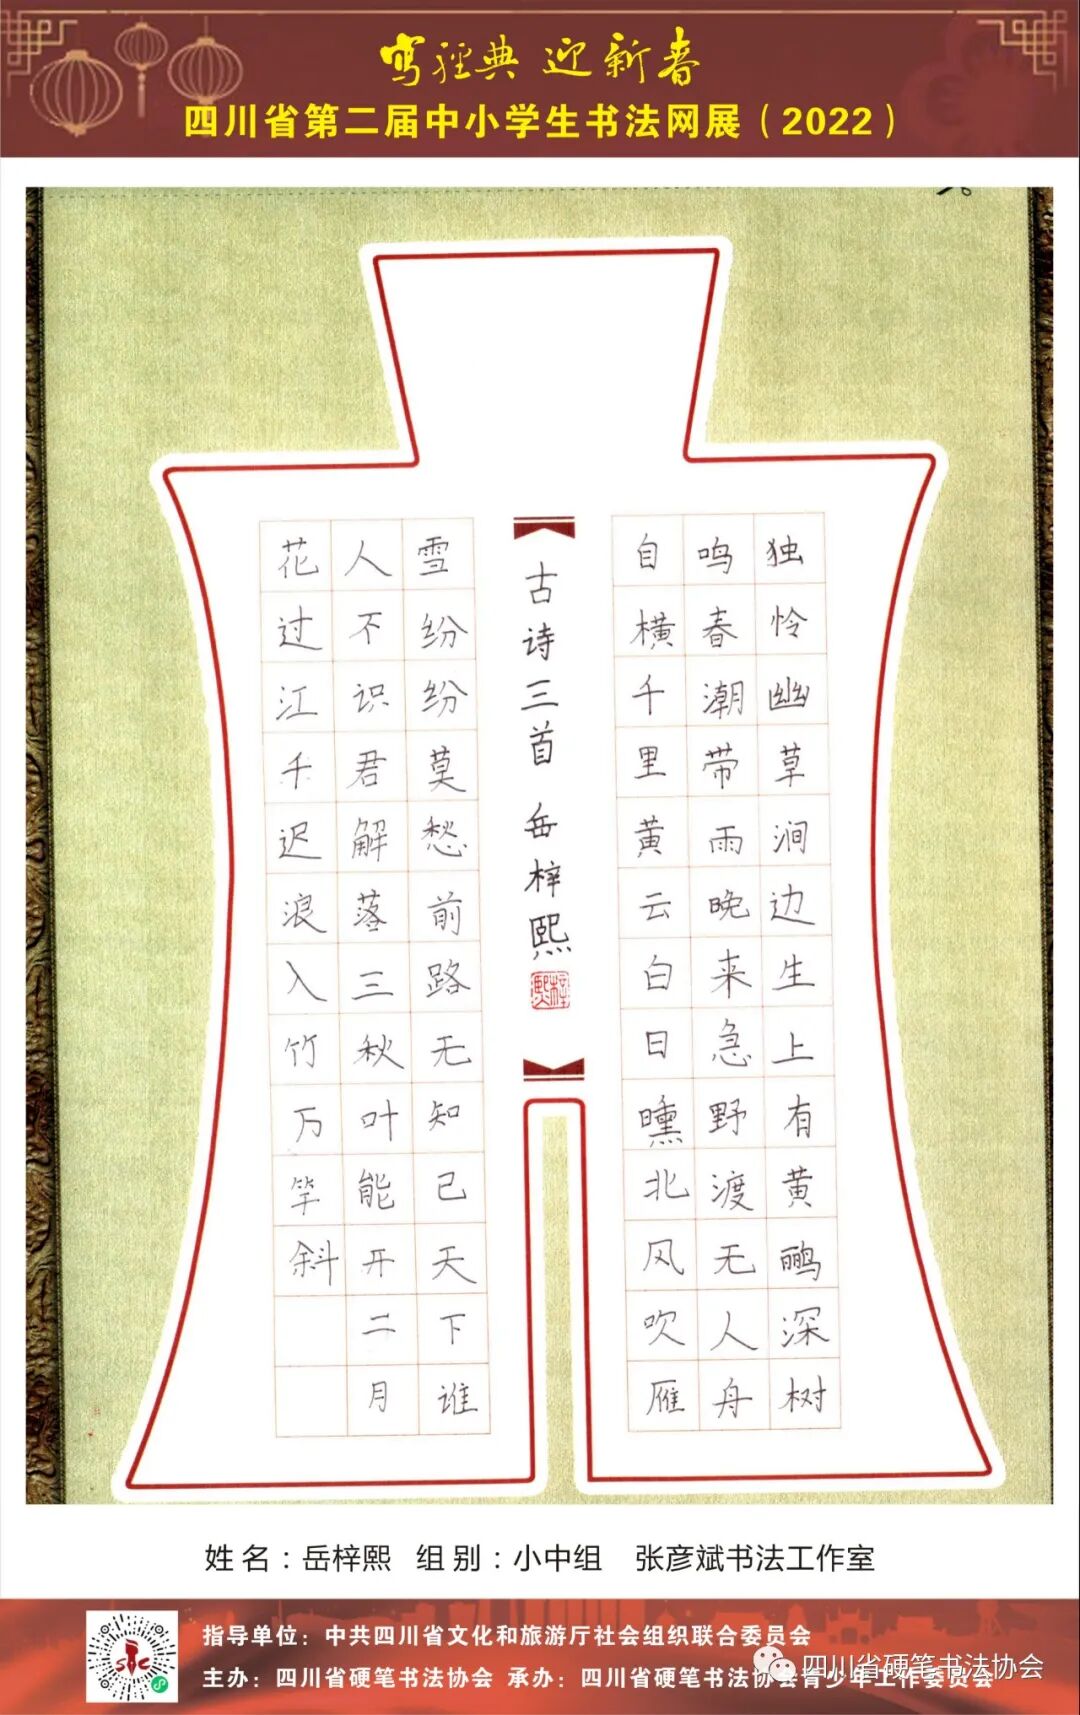 写经典 迎新春
四川省第二届中小学生书法网展（2022）
独怜幽草涧边生上有黄鹂深树
鸣春潮带雨晚来急野渡无人舟
自横千里黄云白日曛北风吹雁
古诗三首 岳梓熙
梓熙
雪纷纷莫愁前路无知己天下谁
人不识君解落三秋叶能开二月
花过江千迟浪入竹万竿斜
姓名：岳梓熙 组别：小中组 张彦斌书法工作室
指导单位：中共四川省文化和旅游厅社会组织联合委员会
主办：四川省硬笔书法协会 承办：四川省硬笔书法协会青少年工作委员会
四川省硬笔书法协会